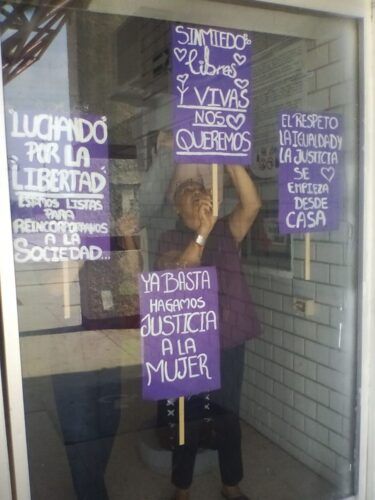 SIN MIEDO
libres
Y VIVAS
NOS
QUEREMOS
"LUCHANDO
POR LA
LIBERTAD"
ESTAMOS LISTAS
PARA
REINCORPORARNOS
A LA
SOCIEDAD...
EL RESPETO
LA IGUALDAD Y
LA JUSTICIA
SE
EMPIEZA
DESDE
CASA
YA BASTA
HAGAMOS
JUSTICIA
A LA
MUJER